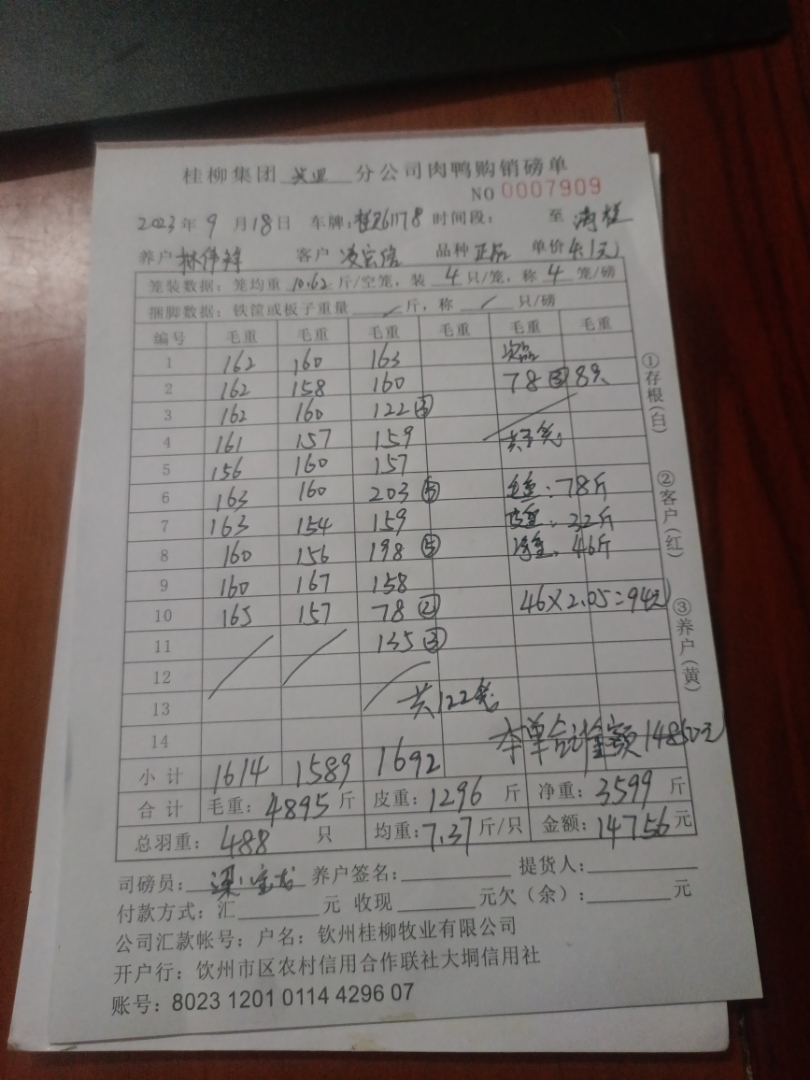 桂柳集团 分公司肉鸭购销磅单
NO 0007909
2023年9月18日 车牌: 时间段: 至
养户 林伟祥 客户 品种 正品 单价 4.1元
笼装数据: 笼均重 10.62 斤/空笼, 装 4 只/笼, 称 4 笼/磅
捆脚数据: 铁筐或板子重量 / 斤, 称 / 只/磅
编号 毛重 毛重 毛重 毛重 毛重 毛重
1 162 160 163 次品
2 162 158 160 78 ③ 8只
3 162 160 122 ③
4 161 157 159 共3笼
5 156 160 157
6 163 160 203 ⑤ 毛重: 78斤
7 163 154 159 皮重: 32斤
8 160 156 198 ⑤ 净重: 46斤
9 160 167 158
10 165 157 78 ② 46×2.05=94元
11 135 ③
12
13 共122笼
14 本单合计金额14850元
小计 1614 1589 1692
合计 毛重: 4895 斤 皮重: 1296 斤 净重: 3599 斤
总羽重: 488 只 均重: 7.37 斤/只 金额: 14756 元
司磅员: 养户签名: 提货人:
付款方式: 汇 元 收现 元欠(余): 元
公司汇款帐号: 户名: 钦州桂柳牧业有限公司
开户行: 钦州市区农村信用合作联社大垌信用社
账号: 8023 1201 0114 4296 07
①存根(白)
②客户(红)
③养户(黄)